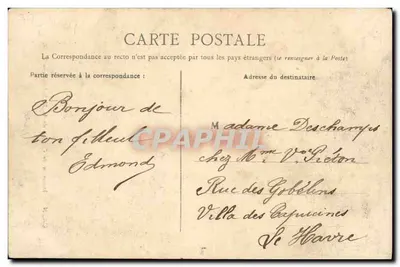 CARTE POSTALE
La Correspondance au recto n'est pas acceptée par tous les pays étrangers (se renseigner à la Poste)
Partie réservée à la correspondance :
Adresse du destinataire
Bonjour de
ton filleul
Edmond
Madame Deschamps
chez Mme Vve
Rue des Gobelins
Villa des Capucines
Le Havre
CPAPHIL